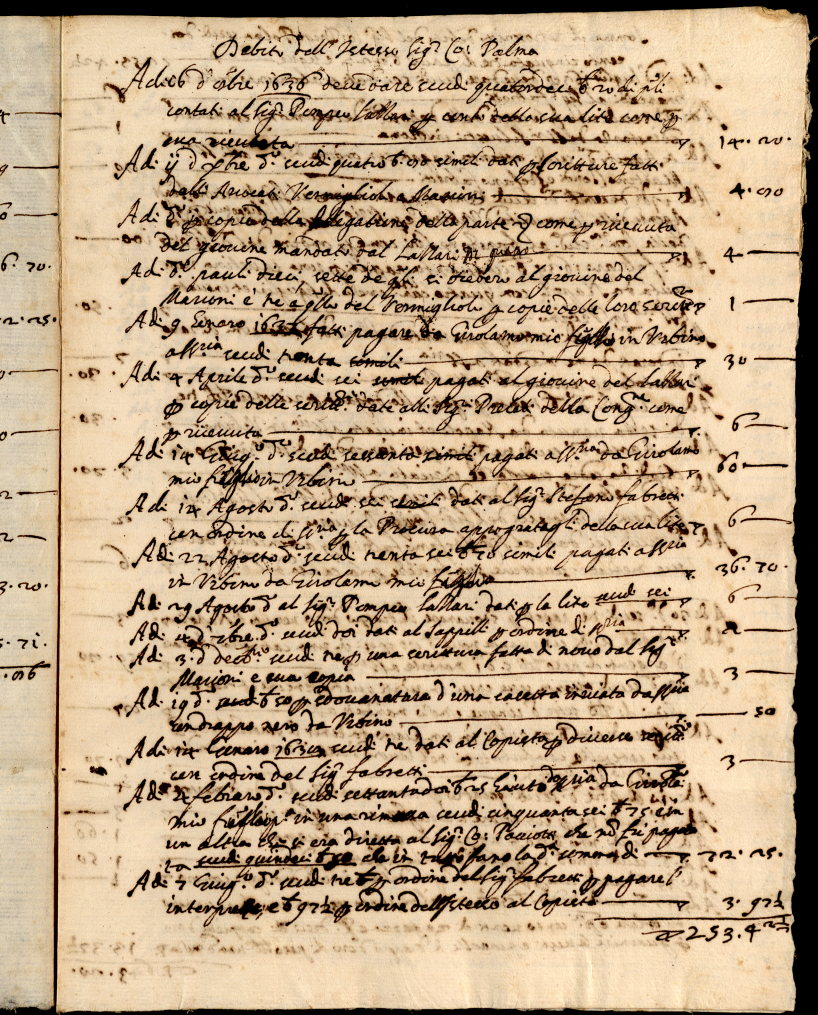 4
9
0
6. 70.
2. 25.
0
0
2
2
3. 20.
5. 71.
. 06
Debito dell'Istesso Sig.r Co: Palma
Adi 16 d'8bre 1636 deve dare scudi quatordeci b 20 di pli
contati al Sig.r Pompeo Lallari p conto della sua lite come p
sua ricevuta 14. 20.
Adi d. scudi quatro b. simili dati p scritture fatti
dalli Avocati Vermigliole Marioni 4.
Adi d. p copia delle della parte come p ricevuta
del giovine mandato dal Lallari 4
Adi d. pauli dieci, sette de gli si diedero al giovine del
Marioni e tre a qllo del Vermigliole p copie delle loro scritte 1
Adi 9 Genaro fatti pagare da Girolamo mio figlio in Urbino
a SSria scudi trenta simili 30
Adi 4 Aprile d. scudi sei simili pagati al giovine del Lallari
p copie delle scritt. dati alli Sig.ri Prelati della Cong.ne come
p ricevuta 6
Adi 14 Giug.o d. scudi sessanta simili pagati a SSria da Girolamo
mio figlio in Urbino 60
Adi 12 Agosto d. scudi sei simili dati al Sig.r Stefano fabretti
con ordine di p la Procura della sua lite 6
Adi 22 Agosto d. scudi trenta sei b 70 simili pagati a SSria
in Urbino da Girolamo mio figlio 36. 70.
Adi 29 Agosto d. al Sig.r Pompeo Lallari dati p la lite scudi sei 6
Adi d. scudi doi dati al Sappili p ordine di SSria 2
Adi 3. d decb.r scudi tre p una scrittura fatta di novo dal Sig.r
Marioni e sua copia 3
Adi 19 d. b 50 p sdoanatura d'una casetta inviata da SSria
con drappo nero da Urbino 50
Adi 14 Genaro scudi tre dati al Copista p diverse scritt.
con ordine del Sig.r fabretti 3
Adi febraro d. scudi settantadoi b 25 da Girola.
mio figliolo in una rimessa scudi cinquanta sei b 75 e in
un altra che si era diretta al Sig.r Co: Paciotti che nō fu pagata
scudi quindeci b 50 che in tutto fano la d. somma di 72. 25.
Adi 7 Giug.o d. scudi tre b p ordine del Sig.r fabretti p pagare l'
interprete, e b 92½ p ordine dell'Istesso al Copista 3. 92½
253. 4